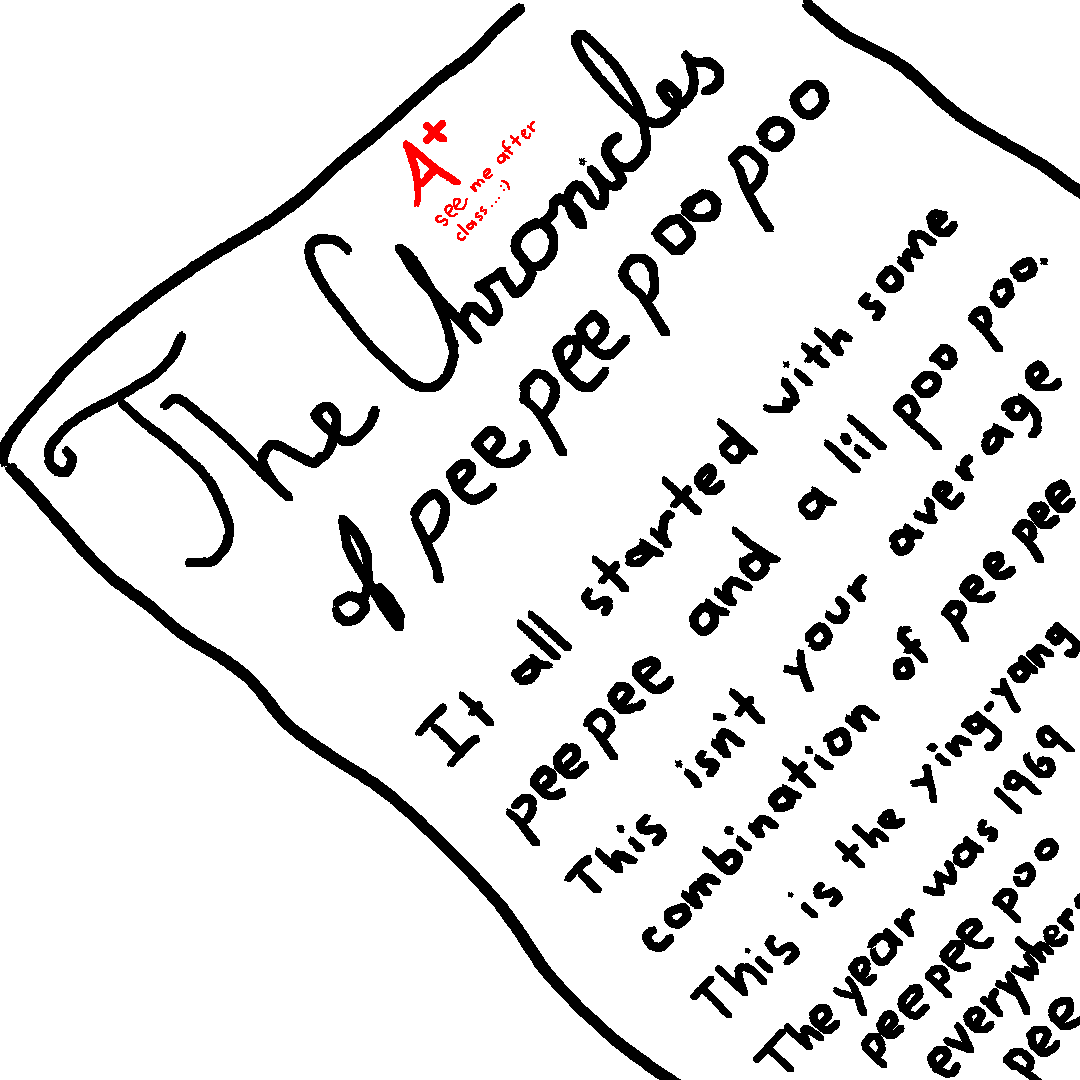 A+
see me after
class... :)
The Chronicles
of peepee poopoo
It all started with some
peepee and a lil poo poo.
This isn't your average
combination of peepee
This is the ying-yang
The year was 1969
peepee poo
everywhere
pee